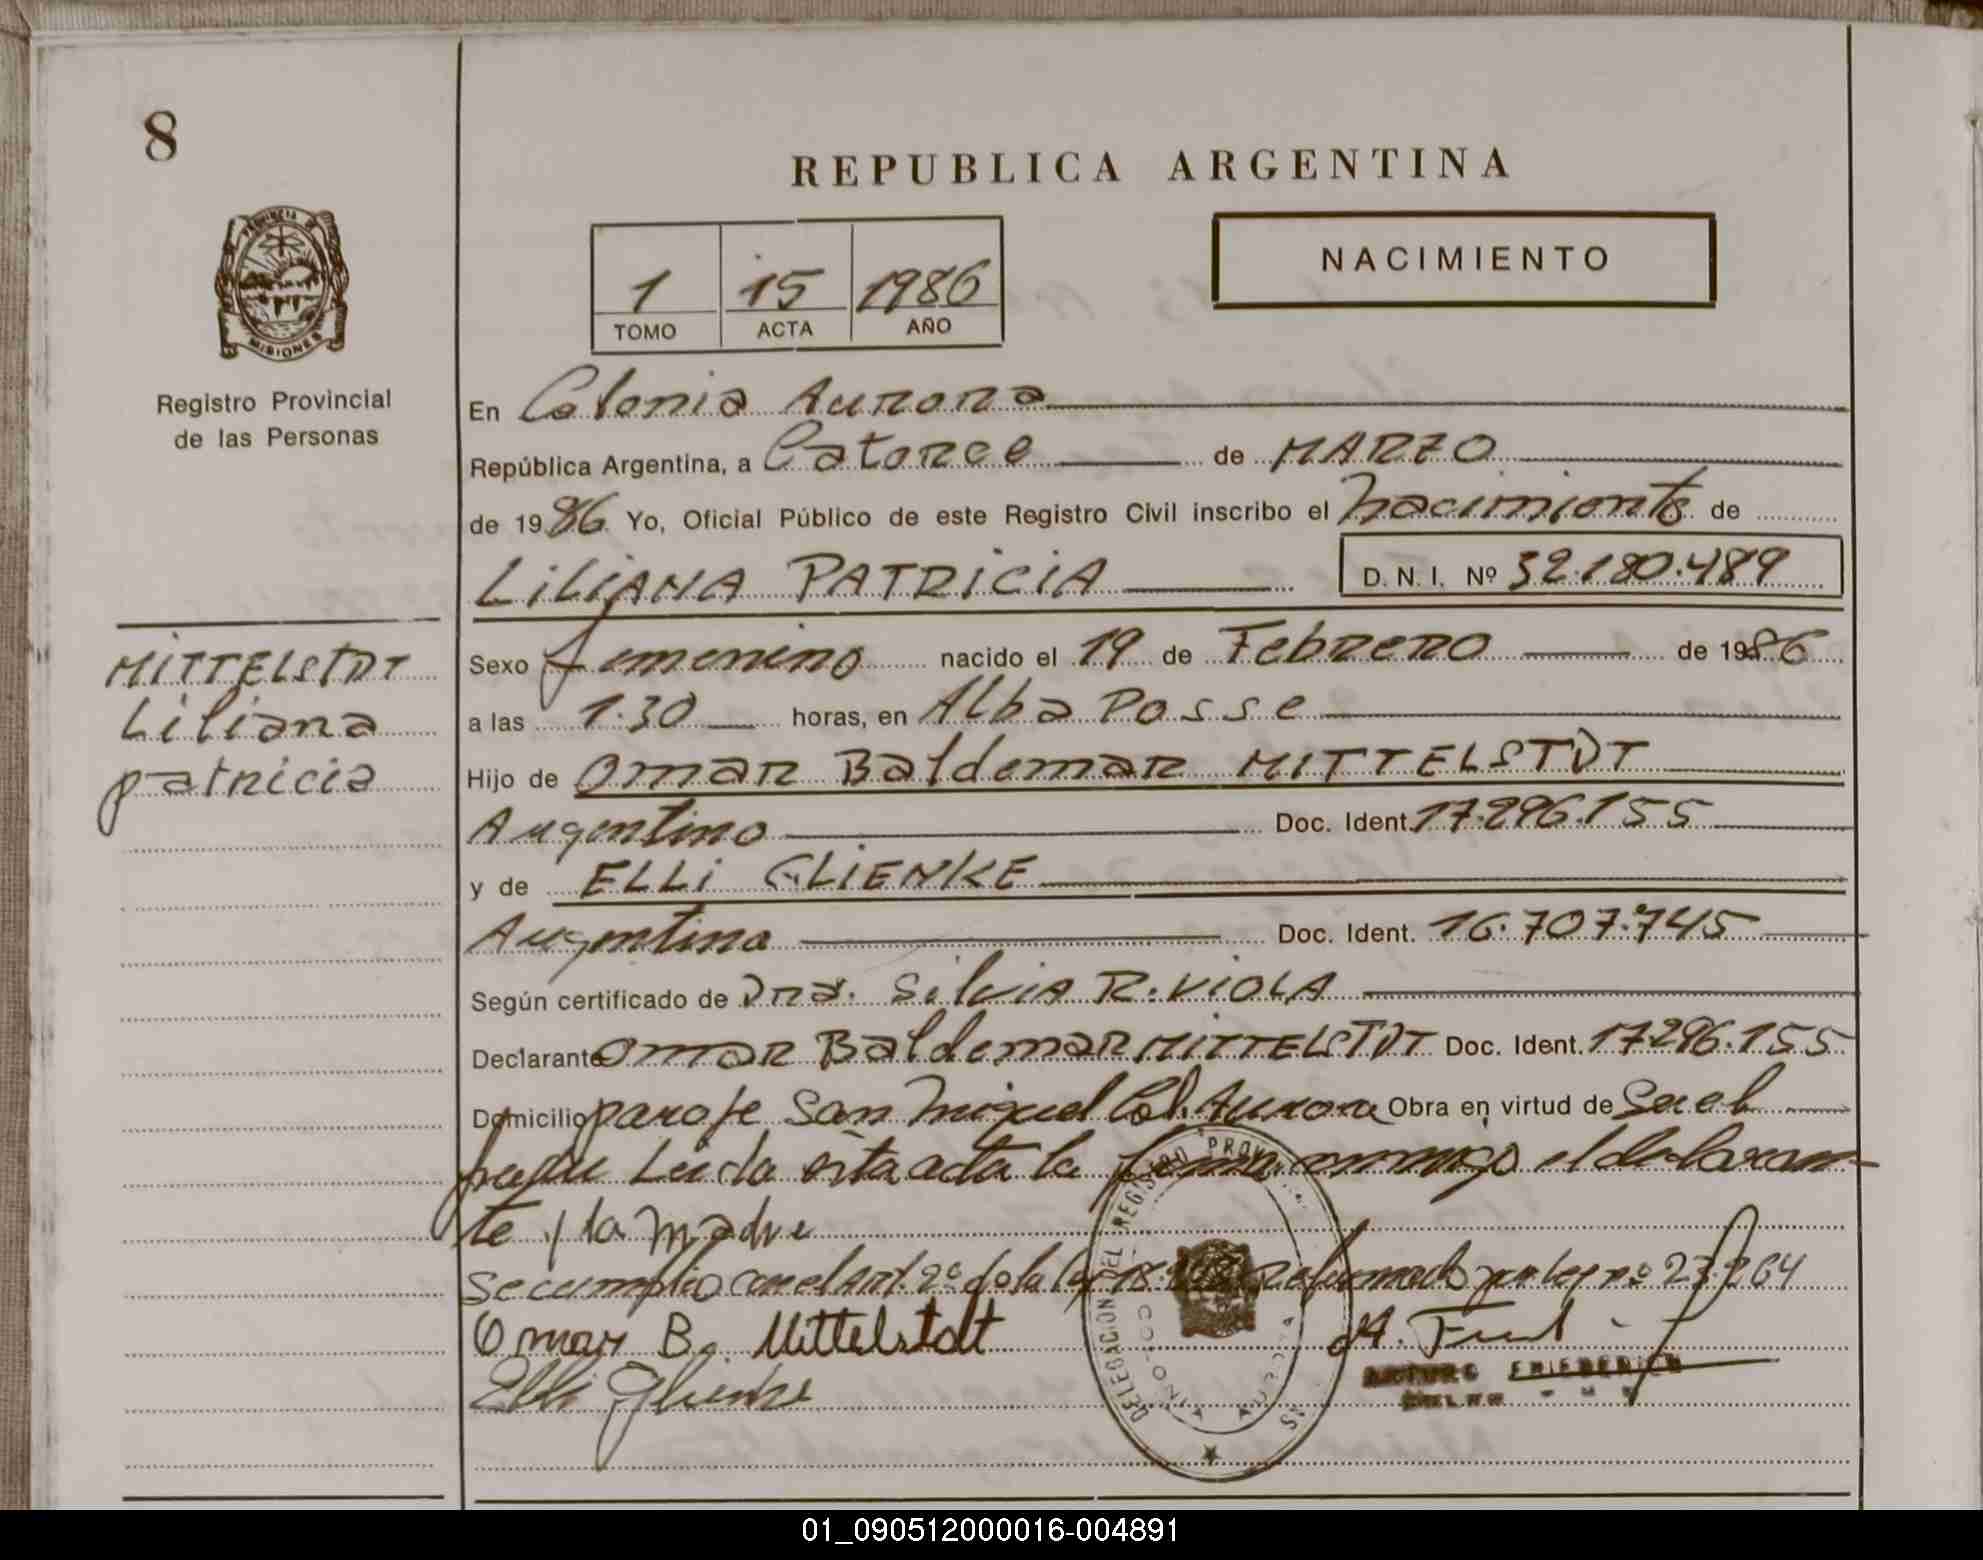 8
REPUBLICA ARGENTINA
PROVINCIA DE
MISIONES
Registro Provincial
de las Personas
1 15 1986
TOMO ACTA AÑO
NACIMIENTO
En Colonia Aurora
República Argentina, a Catorce de MARZO
de 1986 Yo, Oficial Público de este Registro Civil inscribo el nacimiento de
LILIANA PATRICIA D. N. I. Nº 32.180.489
MITTELSTDT
Liliana
patricia
Sexo femenino nacido el 19 de Febrero de 1986
a las 1.30 horas, en Alba Posse
Hijo de Omar Baldemar MITTELSTDT
Argentino Doc. Ident. 17.296.155
y de ELLI GLIENKE
Argentina Doc. Ident. 16.707.745
Según certificado de Dra. Silvia R. VIOLA
Declarante Omar Baldemar MITTELSTDT Doc. Ident. 17.296.155
Domicilio paraje San Miguel Col. Aurora Obra en virtud de Ser el
padre Leida esta acta la firman conmigo el declaran-
te y la madre
Se cumplio con el Art. 2º de la ley Reformado por ley nº 23.264
Omar B. Mittelstdt
Elli Glienke
ARTURO FRIEDERICH
DELEGACION DEL REGISTRO PROV
COLONIA AURORA
01_090512000016-004891